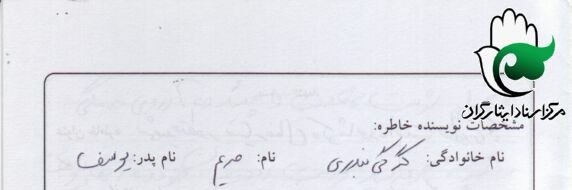 مرکز اسناد ایثارگران
مشخصات نویسنده خاطره:
نام خانوادگی: گرگی بندری نام: مریم نام پدر: یوسف